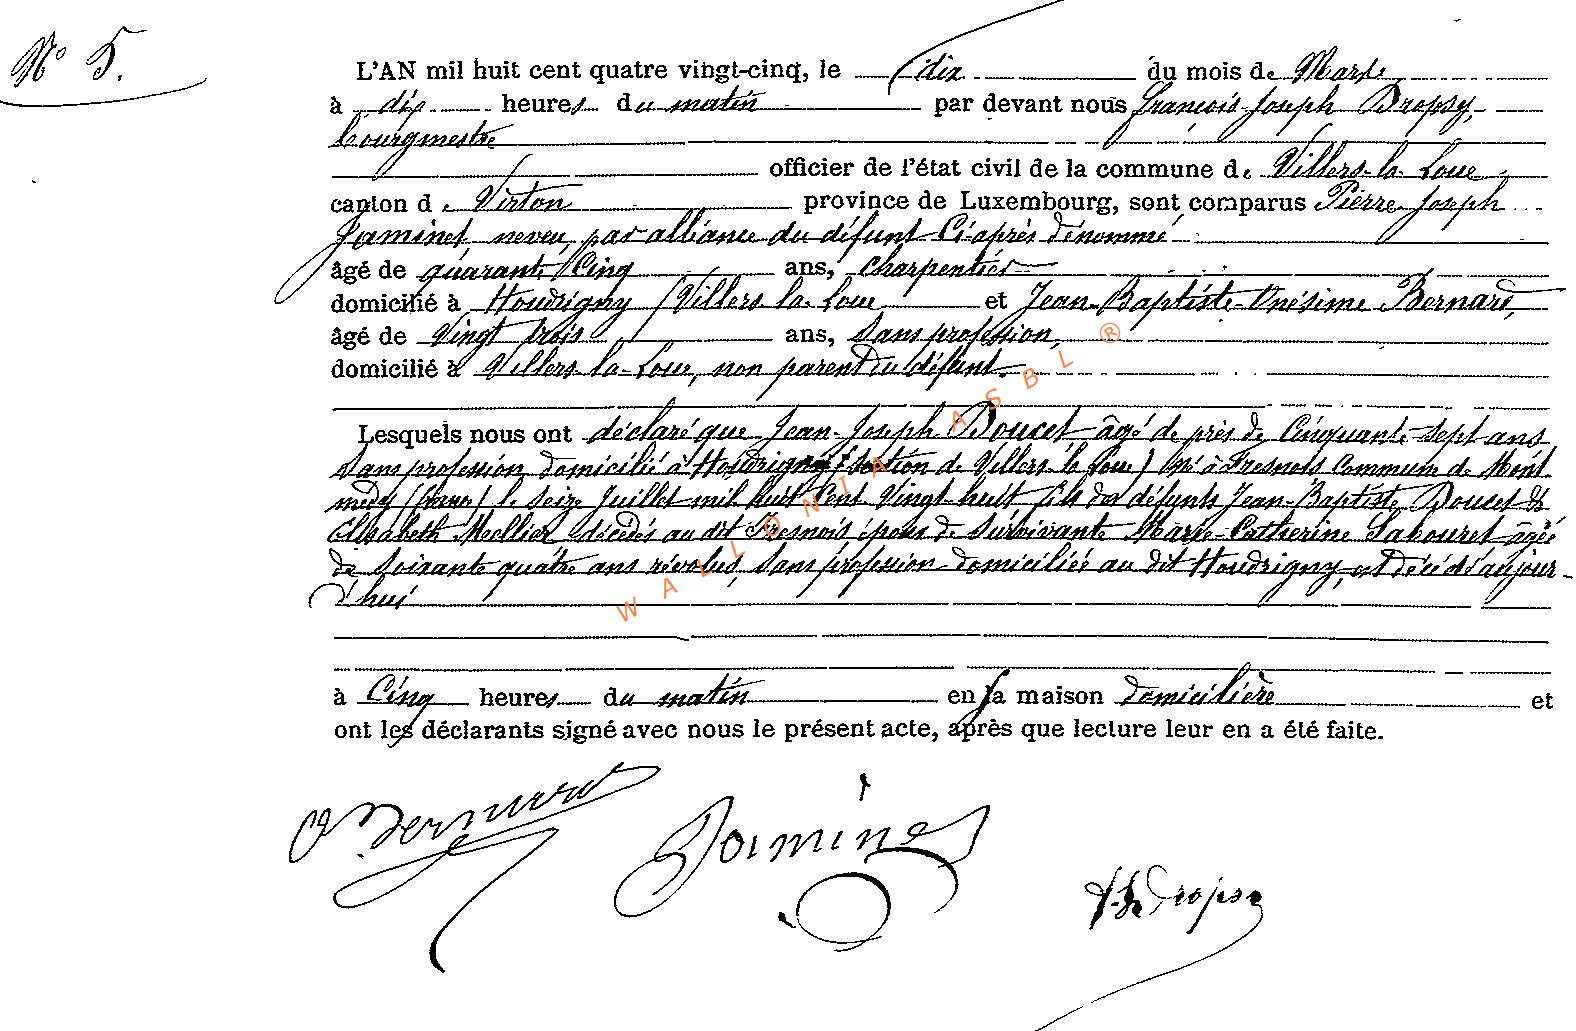 N° 5.
L'AN mil huit cent quatre vingt-cinq, le dix du mois de Mars
à dix heures du matin par devant nous François Joseph Dropsy,
bourgmestre
officier de l'état civil de la commune de Villers-la-Loue
canton de Virton province de Luxembourg, sont comparus Pierre Joseph
Jaminet, neveu par alliance du défunt Ci-après dénommé
âgé de quarante Cinq ans, charpentier
domicilié à Houdrigny (Villers-la-Loue et Jean-Baptiste-Onésime Bernard,
âgé de Vingt trois ans, Sans profession,
domicilié à Villers-la-Loue, non parent du défunt.
Lesquels nous ont déclaré que Jean-Joseph Doucet âgé de près de Cinquante-sept ans
Sans profession domicilié à Houdrigny (Section de Villers-la-Loue) né à Fresnois Commune de Mont
médy le Seize Juillet mil huit Cent Vingt-huit fils des défunts Jean-Baptiste Doucet &
Elisabeth Mellier décédés au dit Fresnois, époux de Survivante Marie-Catherine Labouret âgée
de Soixante quatre ans révolus, Sans profession domiciliée au dit Houdrigny, est décédé aujour-
d'hui
à Cinq heures du matin en sa maison domicilière et
ont les déclarants signé avec nous le présent acte, après que lecture leur en a été faite.
O Bernard
Jaminet
F. J. Dropsy
WALLONIA ASBL ®